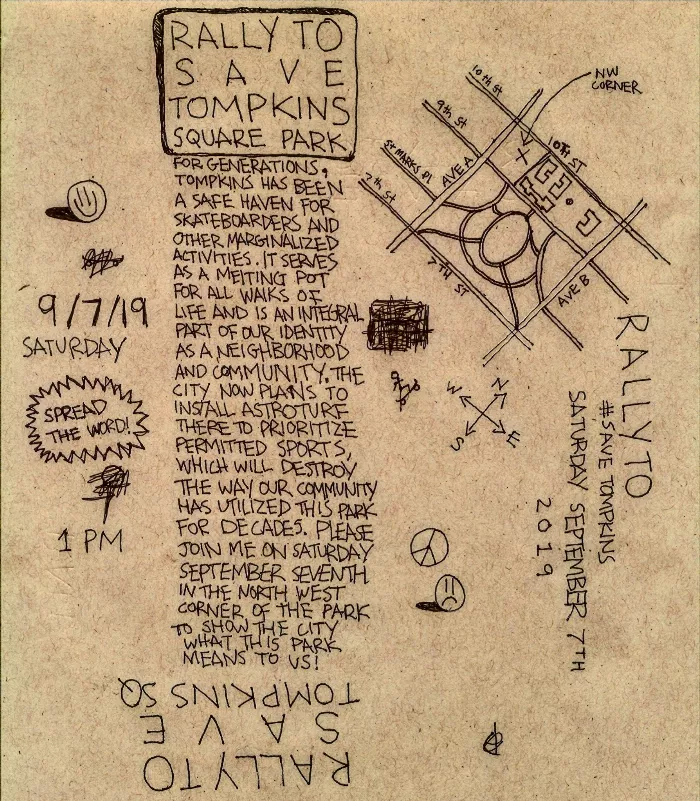 RALLY TO
SAVE
TOMPKINS
SQUARE PARK
FOR GENERATIONS,
TOMPKINS HAS BEEN
A SAFE HAVEN FOR
SKATEBOARDERS AND
OTHER MARGINALIZED
ACTIVITIES. IT SERVES
AS A MELTING POT
FOR ALL WALKS OF
LIFE AND IS AN INTEGRAL
PART OF OUR IDENTITY
AS A NEIGHBORHOOD
AND COMMUNITY. THE
CITY NOW PLANS TO
INSTALL ASTROTURF
THERE TO PRIORITIZE
PERMITTED SPORTS,
WHICH WILL DESTROY
THE WAY OUR COMMUNITY
HAS UTILIZED THIS PARK
FOR DECADES. PLEASE
JOIN ME ON SATURDAY
SEPTEMBER SEVENTH
IN THE NORTH WEST
CORNER OF THE PARK
TO SHOW THE CITY
WHAT THIS PARK
MEANS TO US!
RALLY TO
SAVE
TOMPKINS SQ
9/7/19
SATURDAY
SPREAD
THE WORD!
1 PM
NW
CORNER
10TH ST
9TH ST
ST MARKS PL
7TH ST
AVE A
10TH ST
X
7TH ST
AVE B
N
W
E
S
RALLY TO
#SAVE TOMPKINS
SATURDAY SEPTEMBER 7TH
2019